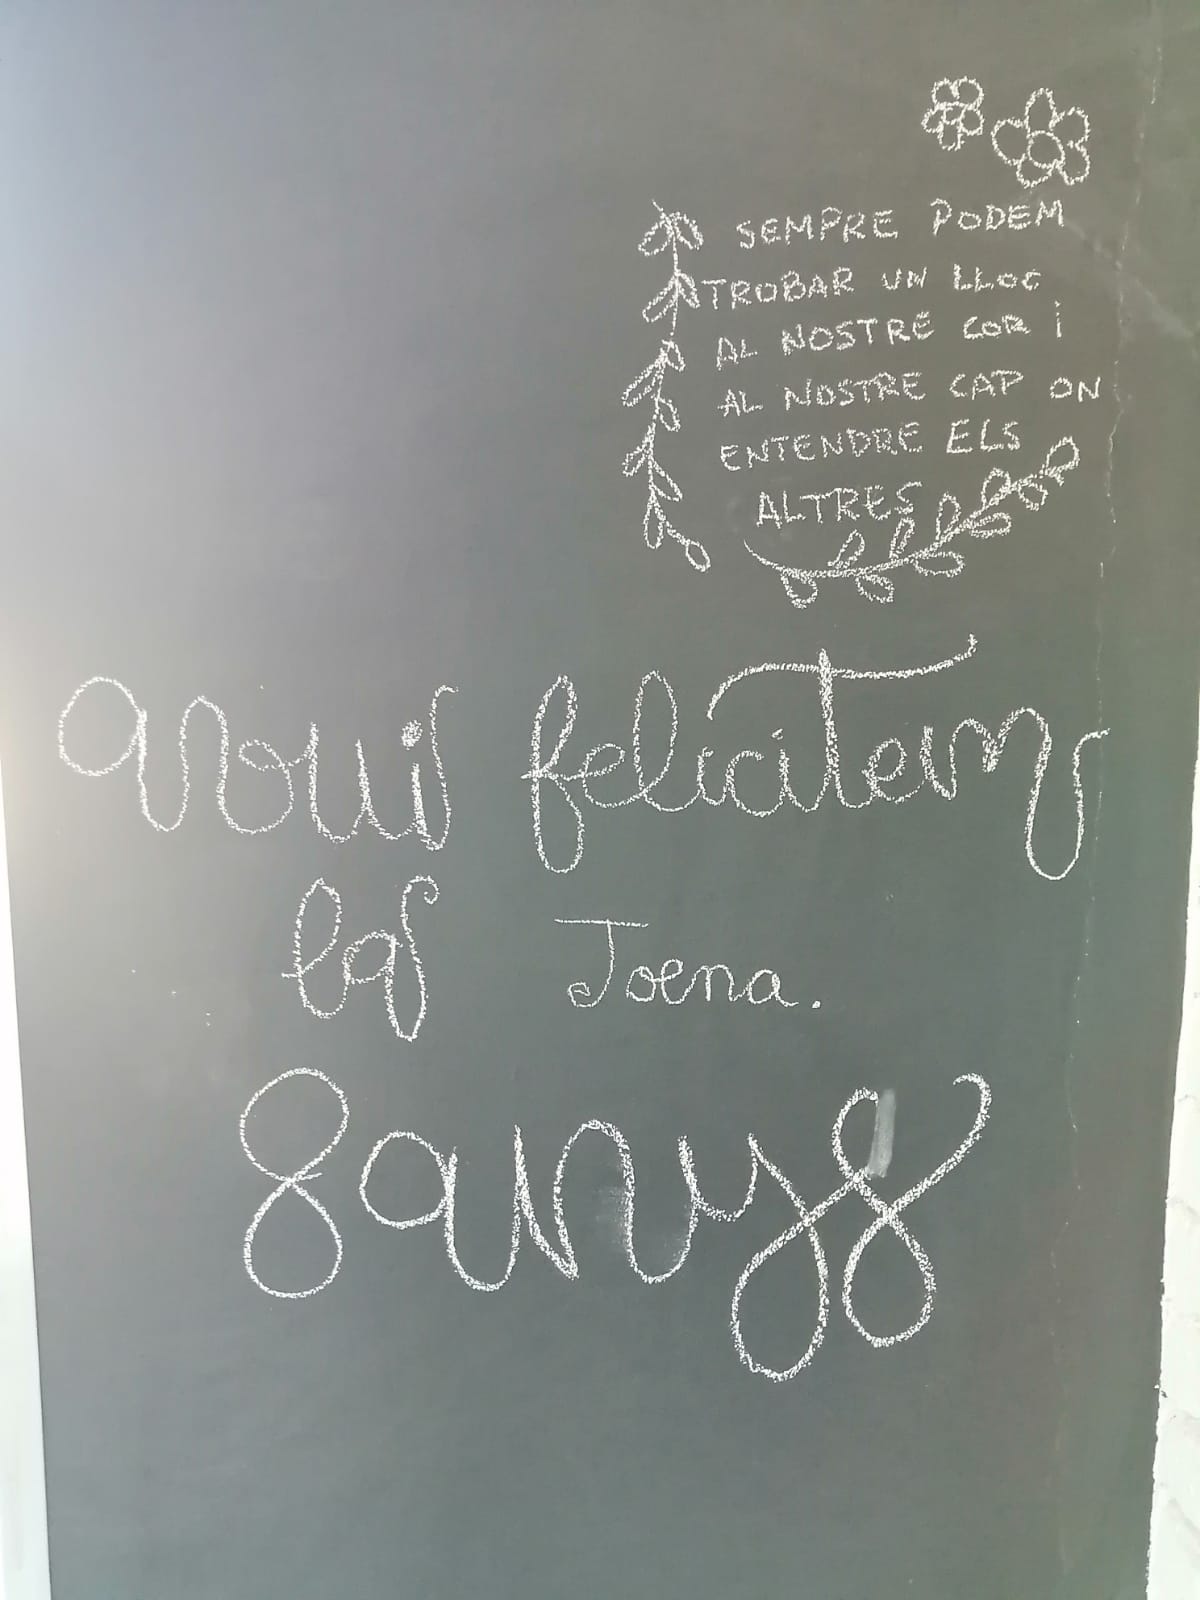 SEMPRE PODEM
TROBAR UN LLOC
AL NOSTRE COR i
AL NOSTRE CAP ON
ENTENDRE ELS
ALTRES
avui felicitem
la Joena.
8 anys